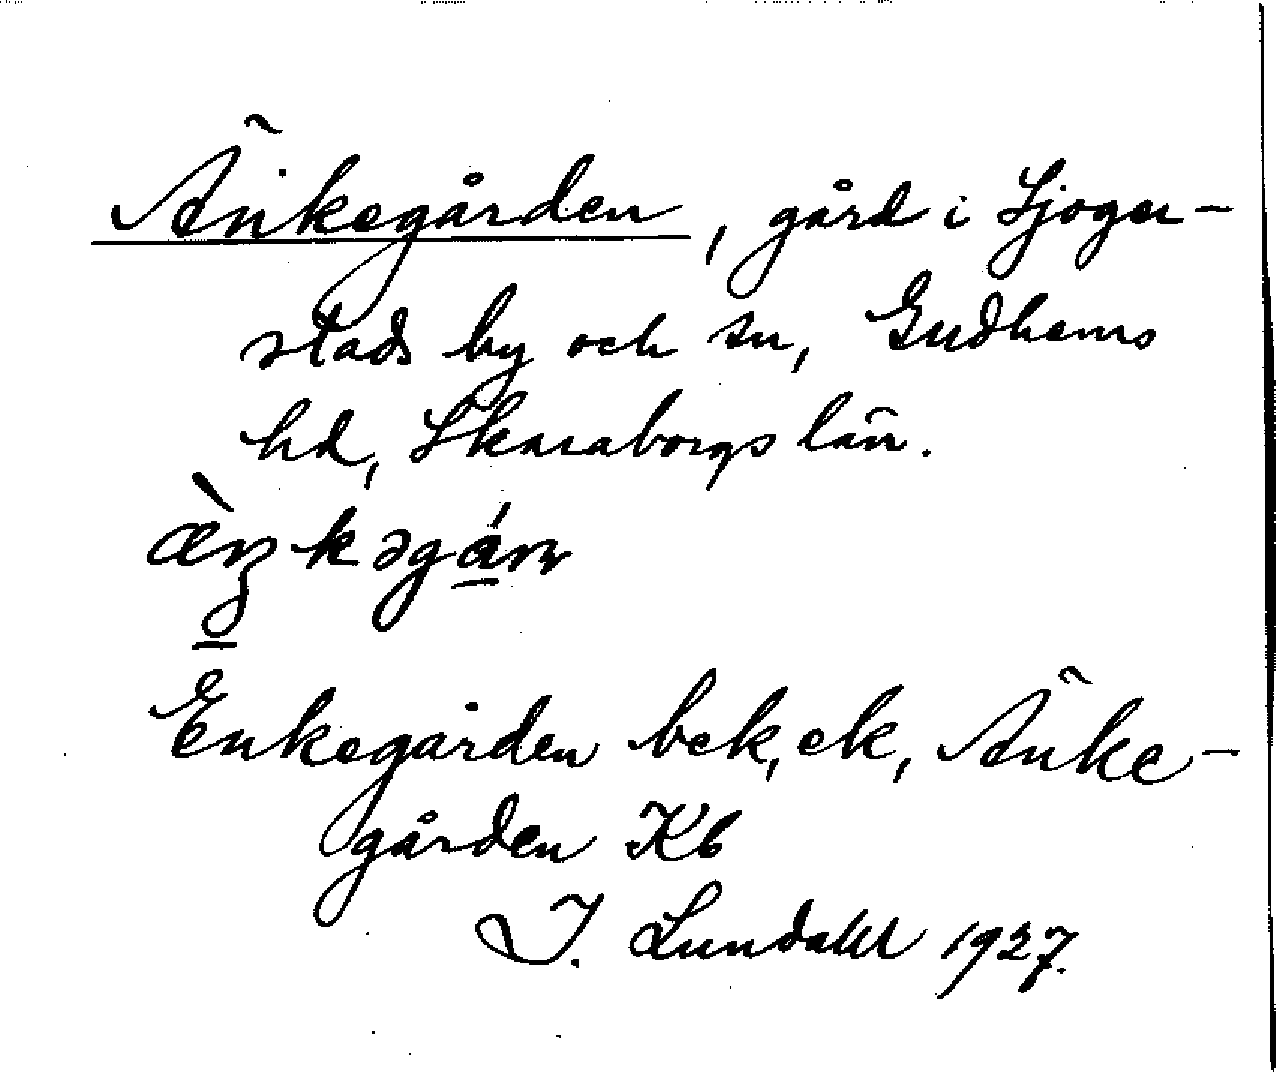 Änkegården, gård i Sjoger-
stads by och sn, Gudhems
hd, Skaraborgs län.
æ̀ŋkəgán
Enkegården bek, ek, Änke-
gården Kb
I. Lundahl 1927.